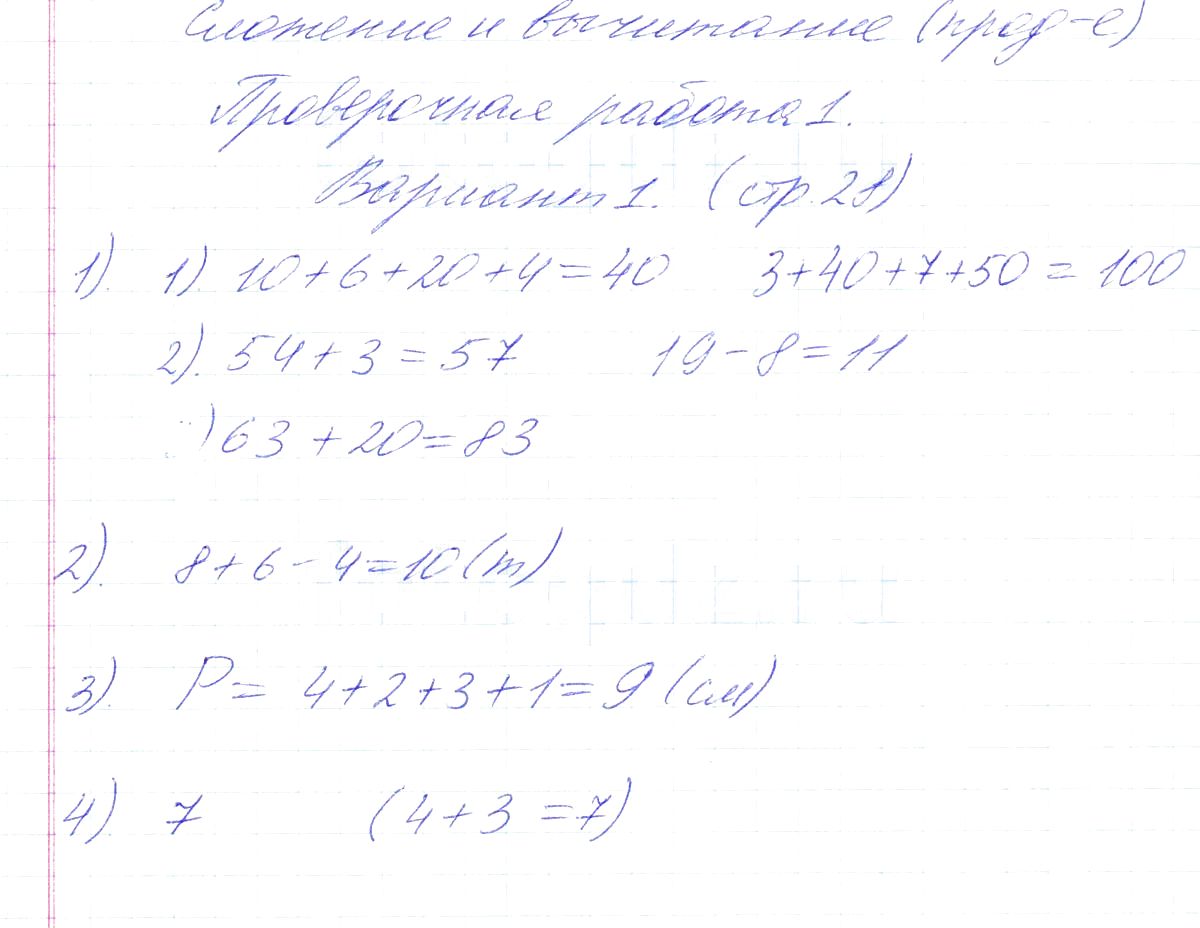 Сложение и вычитание (прод-е)
Проверочная работа 1.
Вариант 1. (стр. 28)
1). 1). 10+6+20+4=40 3+40+7+50=100
2). 54+3=57 19-8=11
)63+20=83
2). 8+6-4=10(т)
3). P= 4+2+3+1=9 (см)
4). 7 (4+3=7)